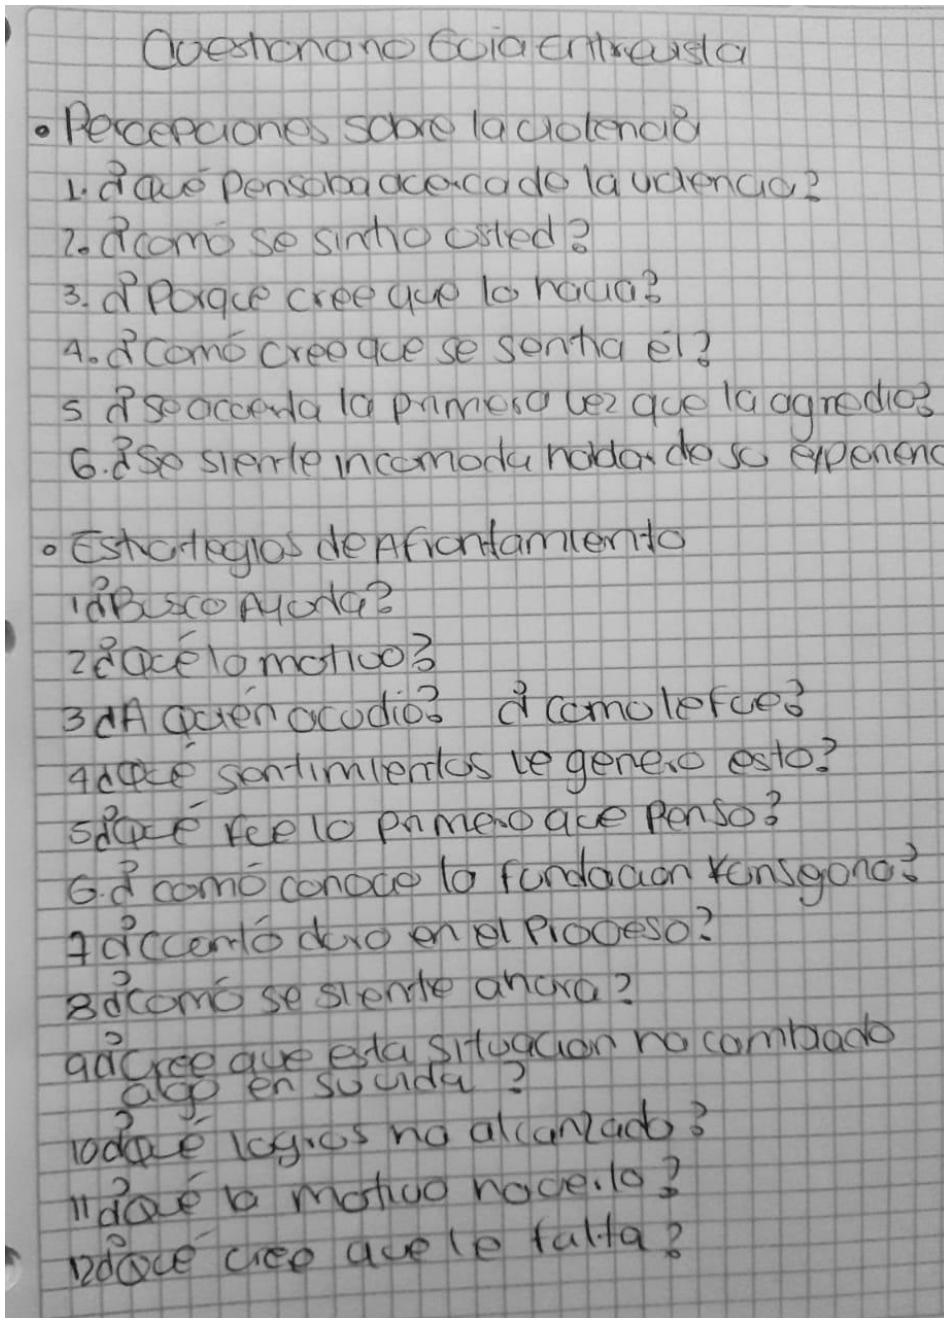 Cuestionario Guia Entrevista
• Percepciones sobre la violencia
1. ¿Qué Pensaba acerca de la violencia?
2. ¿Como se sintio usted?
3. ¿Porque cree que lo hacia?
4. ¿Comó cree que se sentia él?
5 ¿Se accerda la primera vez que la agredio?
6. ¿Se siente incomoda habla de su experienc
• Estrategias de Afrontamiento
1 ¿Busco Ayuda?
2 ¿Qué lo motivo?
3 ¿A Quién acudio? ¿como le fue?
4 ¿Qué sentimientos le genero esto?
5 ¿Qué fue lo primero que Penso?
6. ¿comó conoce la fundacion
7 ¿Cuanto duro en el Proceso?
8 ¿comó se siente ahora?
9 ¿Cree que esta situacion ha cambiado
algo en su vida?
10 ¿Qué logros ha alcanzado?
11 ¿Qué lo motivo hacerlo?
12 ¿Qué cree que le falta?